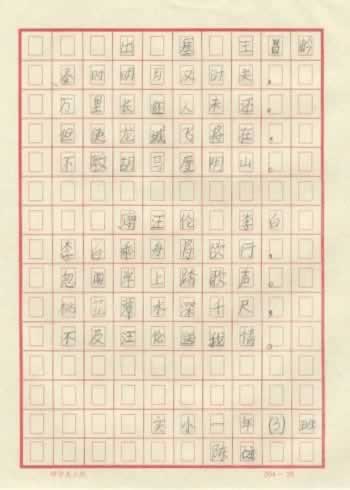 出 塞 王昌龄
秦时明月汉时关,
万里长征人未还。
但使龙城飞将在,
不教胡马度阴山。
赠汪伦 李白
李白乘舟将欲行,
忽闻岸上踏歌声。
桃花潭水深千尺,
不及汪伦送我情。
实小一年(3)班
陈